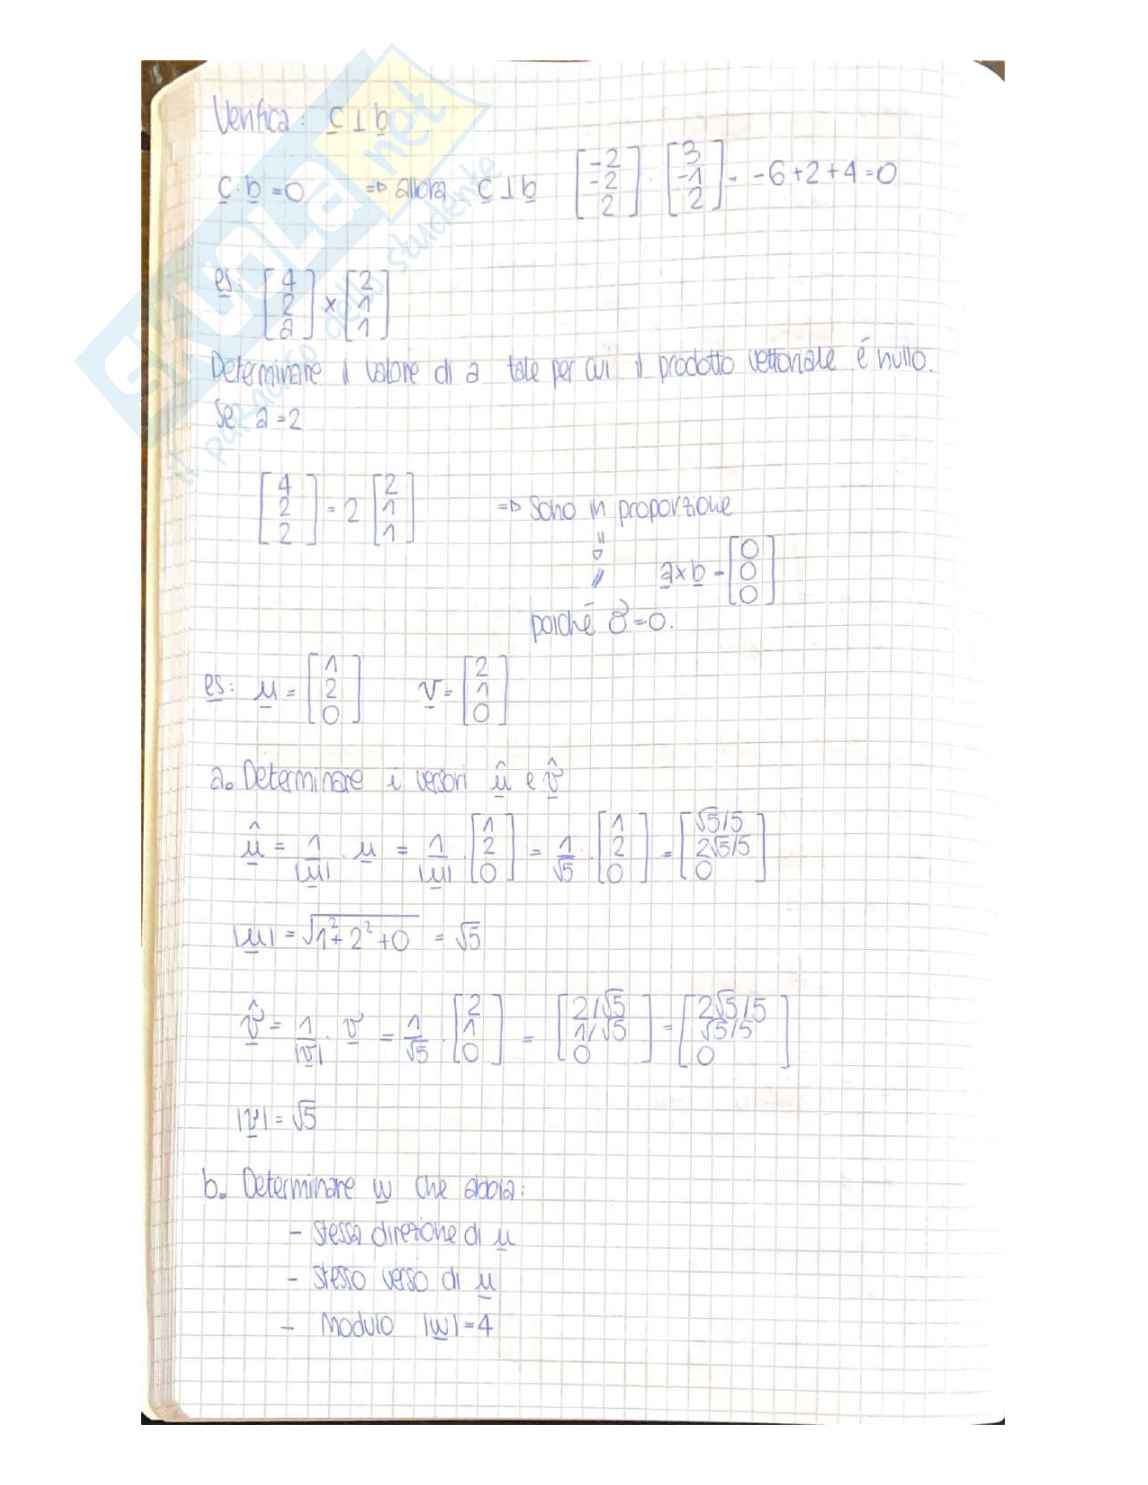 Verifica: c ⊥ b
c · b = 0 => allora c ⊥ b [-2 -2 2] · [3 -1 2] = -6+2+4=0
es: [4 2 a] × [2 1 1]
Determinare il valore di a tale per cui il prodotto vettoriale é nullo.
Se a=2
[4 2 2] = 2 [2 1 1] => Sono in proporzione
a×b = [0 0 0]
poiché =0.
es: u = [1 2 0] v = [2 1 0]
a. Determinare i versori û e v̂
û = 1/|u| · u = 1/|u| · [1 2 0] = 1/√5 · [1 2 0] = [√5/5 2√5/5 0]
|u| = √(1²+2²+0) = √5
v̂ = 1/|v| · v = 1/√5 · [2 1 0] = [2/√5 1/√5 0] = [2√5/5 √5/5 0]
|v| = √5
b. Determinare w che abbia:
- stessa direzione di u
- stesso verso di u
- Modulo |w|=4
SKUOLA.net
il paradiso dello studente